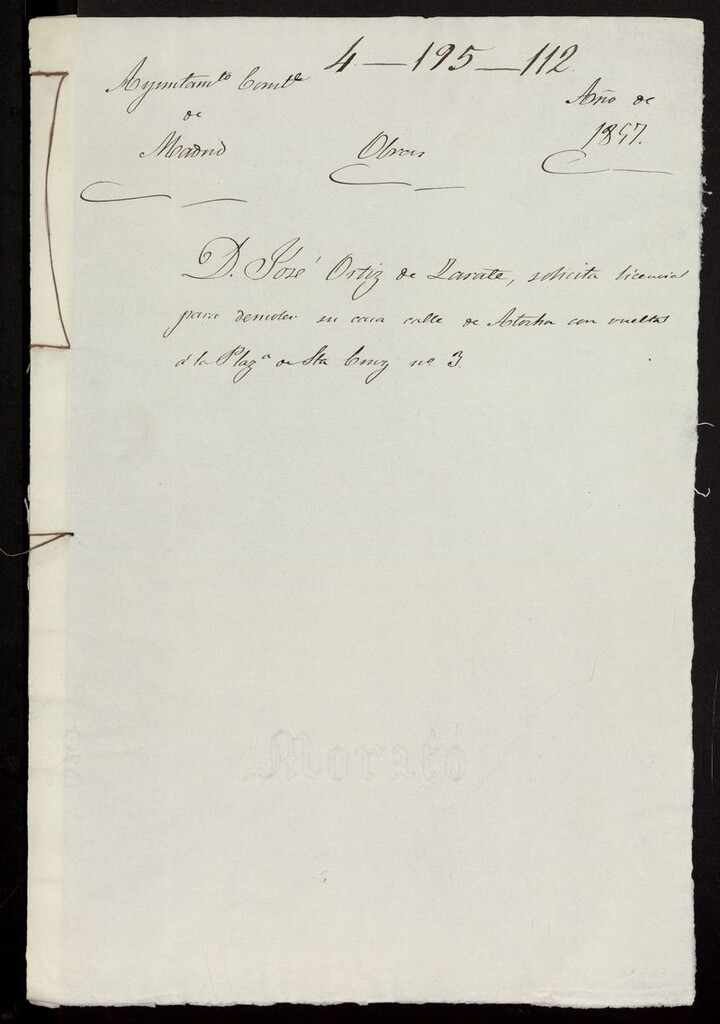 4 — 195 — 112
Ayuntamto Constl
de
Madrid
Obras
Año de
1857.
D. José Ortiz de Zarate, solicita licencia
para demoler su casa calle de Atocha con vuelta
á la Plaza de Sta Cruz no 3.